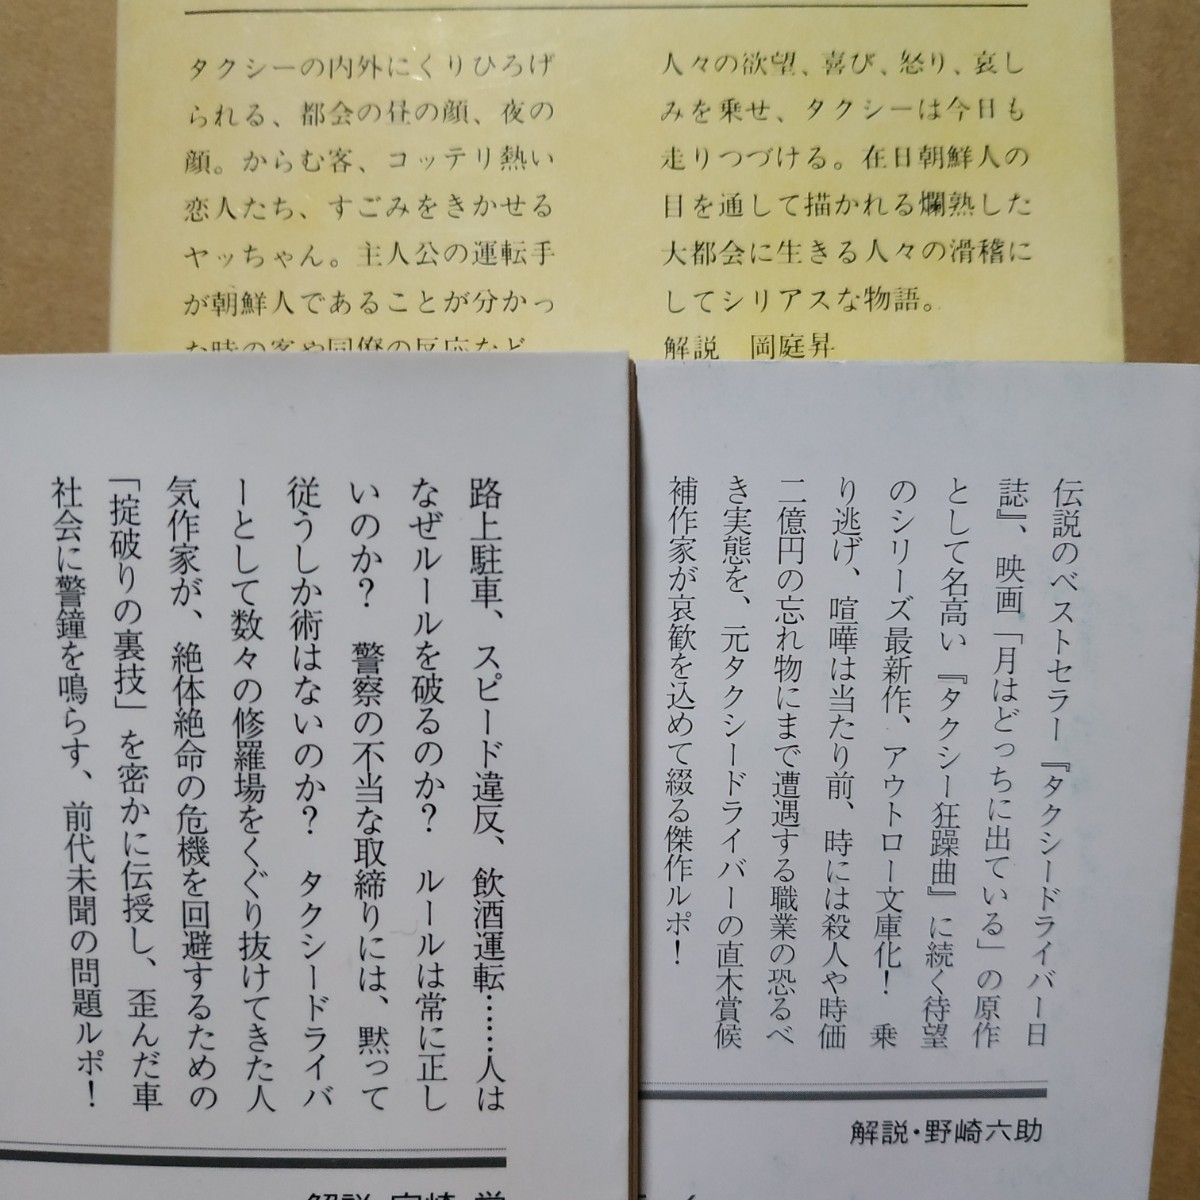 タクシーの内外にくりひろげ
られる、都会の昼の顔、夜の
顔。からむ客、コッテリ熱い
恋人たち、すごみをきかせる
ヤッちゃん。主人公の運転手
が朝鮮人であることが分かっ
た時の客や同僚の反応など、
人々の欲望、喜び、怒り、哀し
みを乗せ、タクシーは今日も
走りつづける。在日朝鮮人の
目を通して描かれる爛熟した
大都会に生きる人々の滑稽に
してシリアスな物語。
解説 岡庭昇
伝説のベストセラー『タクシードライバー日
誌』、映画「月はどっちに出ている」の原作
として名高い『タクシー狂躁曲』に続く待望
のシリーズ最新作、アウトロー文庫化! 乗
り逃げ、喧嘩は当たり前、時には殺人や時価
二億円の忘れ物にまで遭遇する職業の恐るべ
き実態を、元タクシードライバーの直木賞候
補作家が哀歓を込めて綴る傑作ルポ!
解説・野崎六助
路上駐車、スピード違反、飲酒運転……人は
なぜルールを破るのか? ルールは常に正し
いのか? 警察の不当な取締りには、黙って
従うしか術はないのか? タクシードライバ
ーとして数々の修羅場をくぐり抜けてきた人
気作家が、絶体絶命の危機を回避するための
「掟破りの裏技」を密かに伝授し、歪んだ車
社会に警鐘を鳴らす、前代未聞の問題ルポ!
解説・宮崎 学